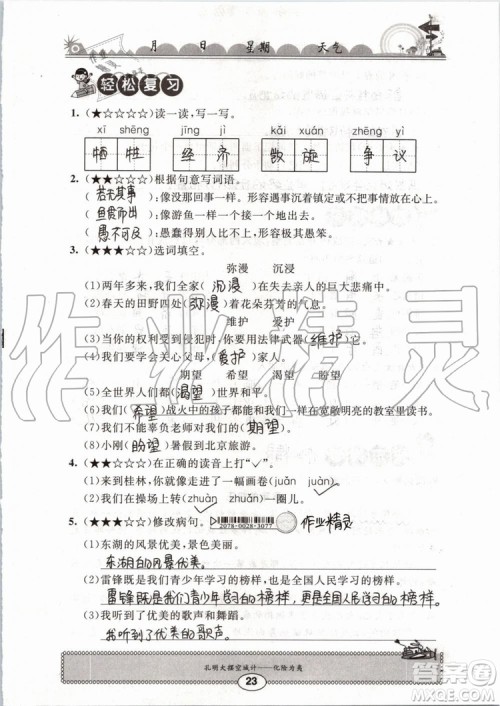 月 日 星期 天气
轻松复习
1.(★☆☆☆☆)读一读,写一写。
xī shēng jīng jì kǎi xuán zhēng yì
牺 牲 经 济 凯 旋 争 议
2.(★★☆☆☆)根据句意写词语。
(若无其事):像没那回事一样。形容遇事沉着镇定或不把事情放在心上。
(鱼贯而出):像游鱼一个接一个地出去。
(愚不可及):愚蠢得别人比不上,形容极其愚笨。
3.(★★★☆☆)选词填空。
弥漫 沉浸
(1)两年多来,我们全家(沉浸)在失去亲人的巨大悲痛中。
(2)春天的田野四处(弥漫)着花朵芬芳的气息。
维护 爱护
(3)权利受到侵犯时,你要用法律武器(维护)它。
(4)我们要学会关心父母,(爱护)家人。
期望 希望 渴望 盼望
(5)全世界人们都(渴望)世界和平。
(6)我们(希望)战火中的孩子都能在宽敞明亮的教室里读书。
(7)我们不能辜负老师对我们的(期望)。
(8)小刚(盼望)暑假到北京旅游。
4.(★★☆☆☆)在正确的读音上打“✓”。
(1)来到桂林,我们走进了一幅画卷(juǎn juàn)。
(2)我们在操场上转(zhuàn zhuǎn)一圈儿。
5.(★★★☆☆)修改病句。 2078-0028-3077 作业精灵
(1)东湖的风景优美,景色美丽。
东湖的风景优美。
(2)雷锋既是我们青少年学习的榜样,也是全国人民学习的榜样。
雷锋既是我们青少年学习的榜样,也是全国人民学习的榜样。
(3)我们听到了优美的歌声和舞蹈。
我们听到了优美的歌声。
孔明大摆空城计——化险为夷
23
作业精灵